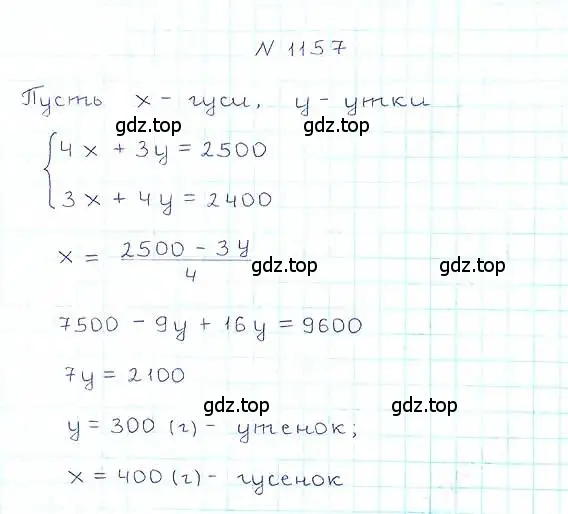 N 1157
Пусть x - гуси, y - утки
gdz.top gdz.top
4x + 3y = 2500
3x + 4y = 2400
x = (2500 - 3y)/4
gdz.top gdz.top
7500 - 9y + 16y = 9600
7y = 2100
gdz.top gdz.top
y = 300 (г) - утенок;
x = 400 (г) - гусенок